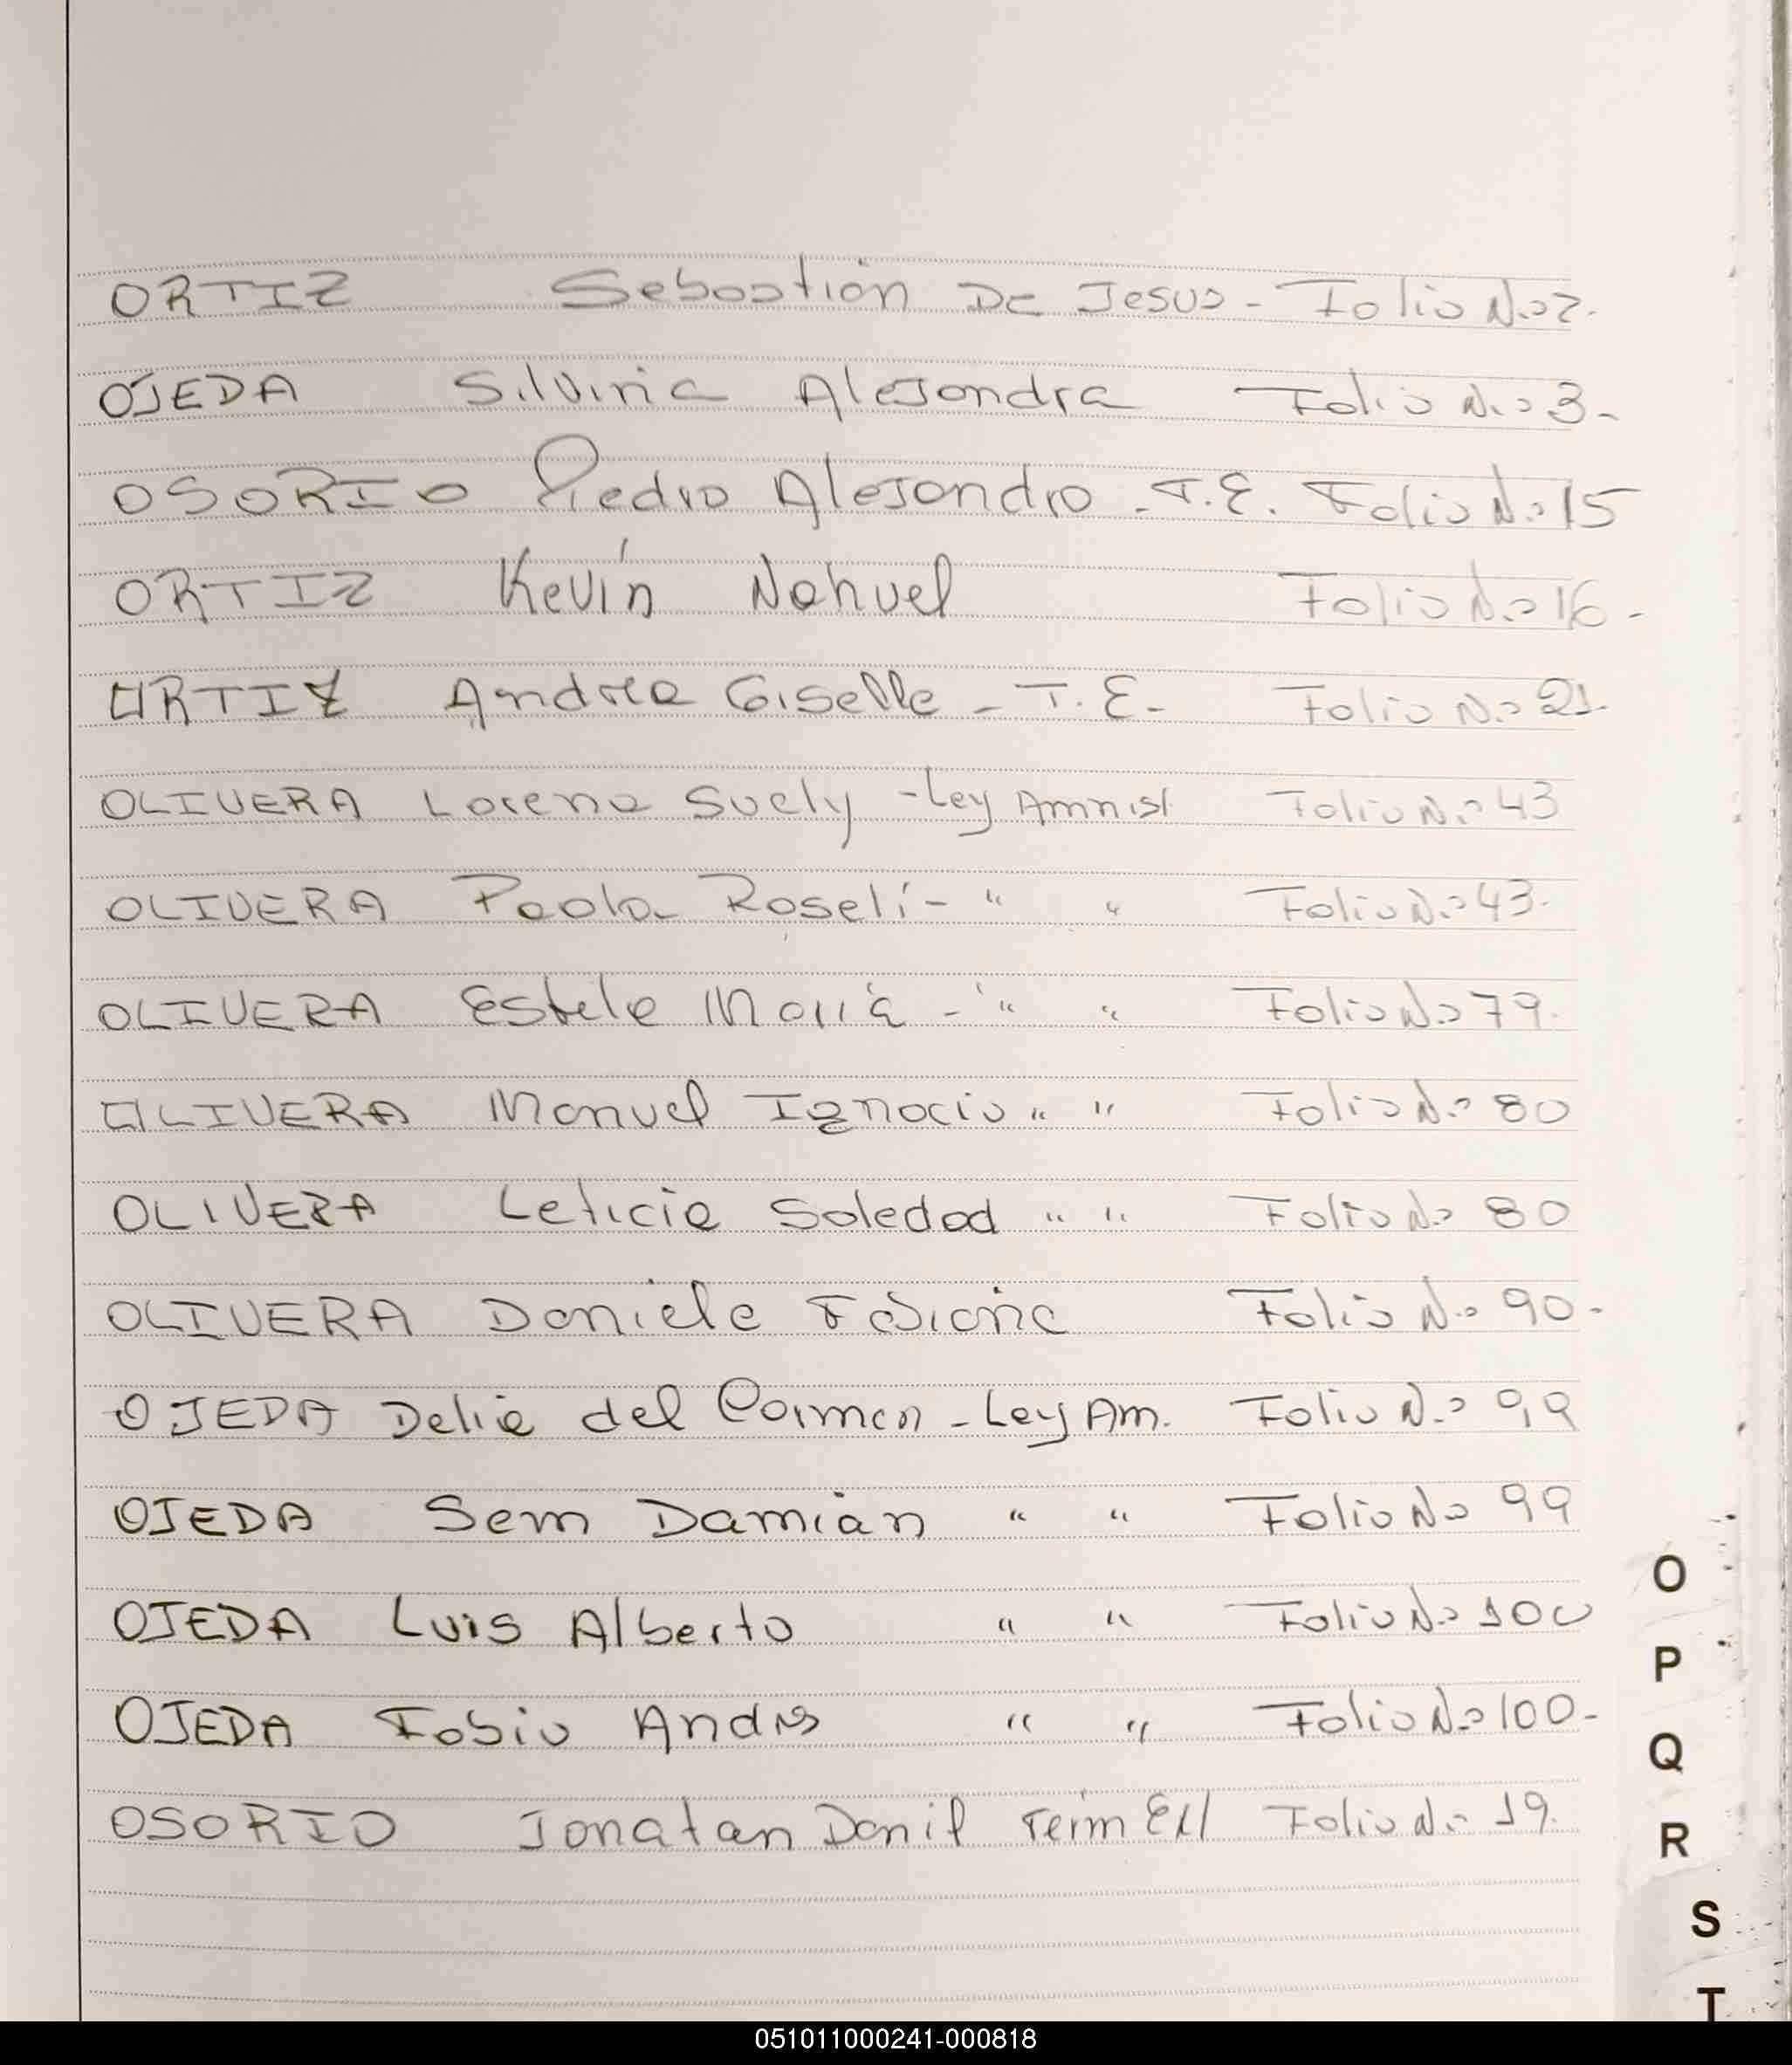 ORTIZ Sebastián De Jesus - Folio No 2.
OJEDA Silvina Alejandra Folio No 3-
OSORIO Pedro Alejandro - T.E. Folio No 15
ORTIZ Kevín Nahuel Folio No 16-
ORTIZ Andrea Giselle - T.E- Folio No 21.
OLIVERA Lorena Suely - Ley Amnist Folio No 43
OLIVERA Paola Roselí - " " Folio No 43.
OLIVERA Estela María - " " Folio No 79.
OLIVERA Manuel Ignacio " " Folio No 80
OLIVERA Leticia Soledad " " Folio No 80
OLIVERA Daniela Fabiana Folio No 90-
OJEDA Delia del Carmen - Ley Am. Folio No 99
OJEDA Sem Damián " " Folio No 99
OJEDA Luis Alberto " " Folio No 100
OJEDA Fabio Andrs " " Folio No 100-
OSORIO Jonatan Danil Folio No 19.
O
P
Q
R
S
T
051011000241-000818